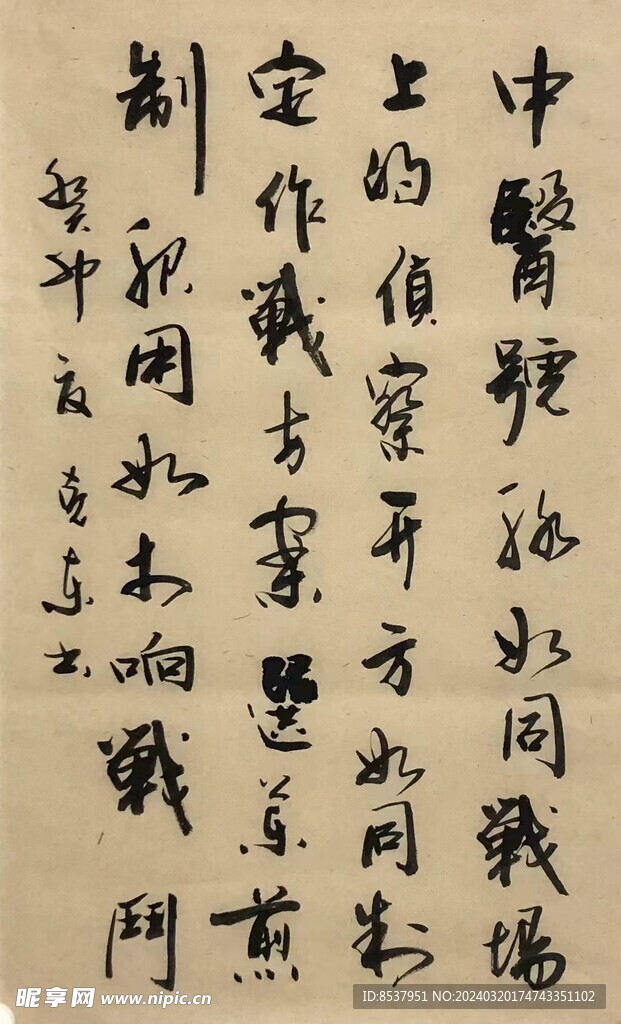 中醫號脉如同戰場
上的偵察开方如同制
定作戰方案選藥煎
制服用如响戰鬥
癸卯夏克东书
昵享网 www.nipic.cn
ID:8537951 NO:20240320174743351102